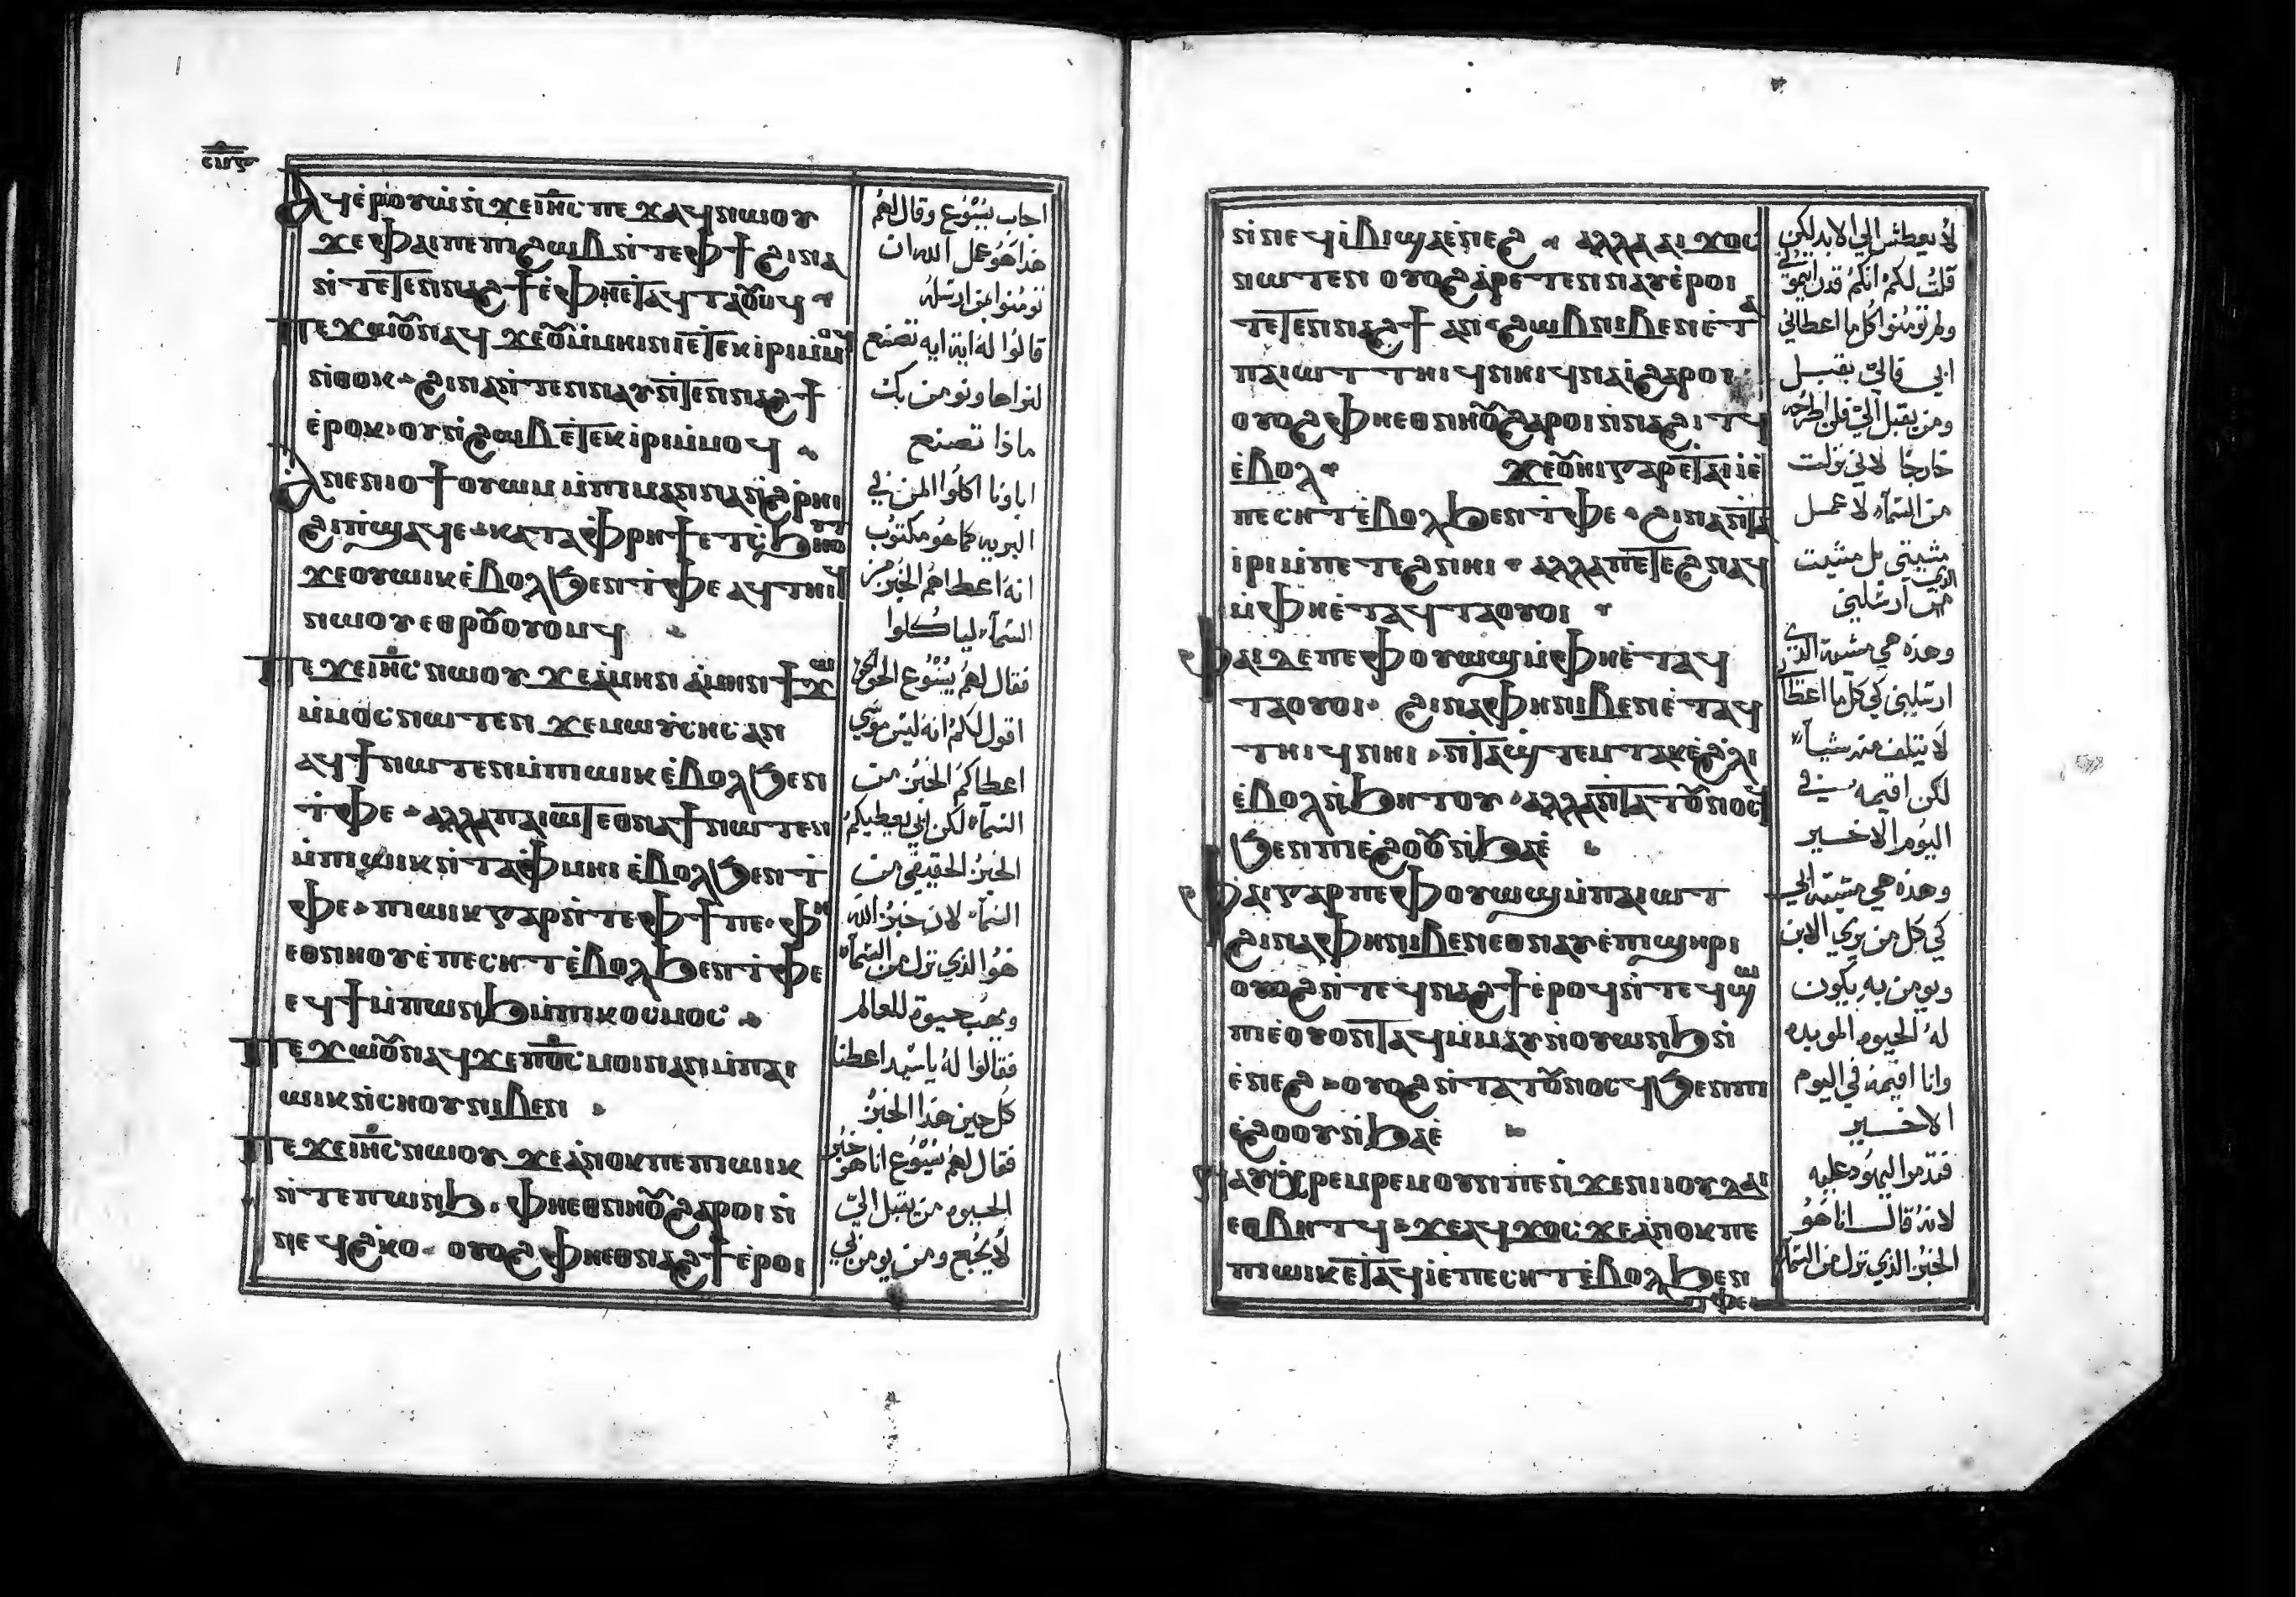 ⲁϥⲉ̀ⲣⲟⲩⲱ̀ ⲛ̀ϫⲉ ⲓⲏ̅ⲥ̅ ⲡⲉϫⲁϥ ⲛⲱⲟⲩ
ϫⲉ ⲫⲁⲓ ⲡⲉ ⲡⲓϩⲱⲃ ⲛ̀ⲧⲉ ⲫϯ ϩⲓⲛⲁ
ⲛ̀ⲧⲉⲧⲉⲛⲛⲁϩϯ ⲉ̀ⲫⲏⲉ̀ⲧⲁϥⲧⲁⲟⲩⲟϥ
ⲡⲉϫⲱⲟⲩ ⲛⲁϥ ϫⲉ ⲟⲩ ⲙ̀ⲙⲏⲓⲛⲓ ⲉ̀ⲧⲉⲕⲓⲣⲓ ⲙ̀ⲙⲟϥ
ⲛ̀ⲑⲟⲕ ϩⲓⲛⲁ ⲛ̀ⲧⲉⲛⲛⲁⲩ ⲛ̀ⲧⲉⲛⲛⲁϩϯ
ⲉ̀ⲣⲟⲕ ⲟⲩ ⲛ̀ϩⲱⲃ ⲉ̀ⲧⲉⲕⲓⲣⲓ ⲙ̀ⲙⲟϥ
ⲁⲛⲉⲛⲓⲟϯ ⲟⲩⲱⲙ ⲙ̀ⲡⲓⲙⲁⲛⲛⲁ ⲛ̀ϩ̀ⲣⲏⲓ
ϩⲓ ⲡ̀ϣⲁϥⲉ ⲕⲁⲧⲁ ⲫ̀ⲣⲏϯ ⲉⲧⲥ̀ϧⲏⲟⲩⲧ
ϫⲉ ⲟⲩⲱⲓⲕ ⲉ̀ⲃⲟⲗ ϧⲉⲛ ⲧ̀ⲫⲉ ⲁϥⲧⲏⲓϥ
ⲛⲱⲟⲩ ⲉⲑⲣⲟⲩⲟⲩⲟⲙϥ
ⲡⲉϫⲉ ⲓⲏ̅ⲥ̅ ⲛⲱⲟⲩ ϫⲉ ⲁ̀ⲙⲏⲛ ⲁ̀ⲙⲏⲛ ϯϫⲱ
ⲙ̀ⲙⲟⲥ ⲛⲱⲧⲉⲛ ϫⲉ ⲙⲱⲩ̀ⲥⲏⲥ ⲁⲛ
ⲁϥϯ ⲛⲱⲧⲉⲛ ⲙ̀ⲡⲓⲱⲓⲕ ⲉ̀ⲃⲟⲗ ϧⲉⲛ
ⲧ̀ⲫⲉ ⲁⲗⲗⲁ ⲡⲁⲓⲱⲧ ⲉⲑⲛⲁϯ ⲛⲱⲧⲉⲛ
ⲙ̀ⲡⲓⲱⲓⲕ ⲛ̀ⲧⲁⲫ̀ⲙⲏⲓ ⲉ̀ⲃⲟⲗ ϧⲉⲛ ⲧ̀
ⲫⲉ ⲡⲓⲱⲓⲕ ⲅⲁⲣ ⲛ̀ⲧⲉ ⲫϯ ⲡⲉ ⲫⲏ
ⲉⲑⲛⲏⲟⲩ ⲉ̀ⲡⲉⲥⲏⲧ ⲉ̀ⲃⲟⲗ ϧⲉⲛ ⲧ̀ⲫⲉ
ⲉϥϯ ⲙ̀ⲡⲱⲛϧ ⲙ̀ⲡⲓⲕⲟⲥⲙⲟⲥ
ⲡⲉϫⲱⲟⲩ ⲛⲁϥ ϫⲉ ⲡⲟ̅ⲥ̅ ⲙⲟⲓ ⲛⲁⲛ ⲙ̀ⲡⲁⲓ
ⲱⲓⲕ ⲛ̀ⲥⲏⲟⲩ ⲛⲓⲃⲉⲛ
ⲡⲉϫⲉ ⲓⲏ̅ⲥ̅ ⲛⲱⲟⲩ ϫⲉ ⲁ̀ⲛⲟⲕ ⲡⲉ ⲡⲓⲱⲓⲕ
ⲛ̀ⲧⲉ ⲡⲱⲛϧ ⲫⲏⲉⲑⲛⲏⲟⲩ ϩⲁⲣⲟⲓ ⲛ̀
ⲛⲉϥϩ̀ⲕⲟ ⲟⲩⲟϩ ⲫⲏⲉⲑⲛⲁϩϯ ⲉ̀ⲣⲟⲓ
اجاب يسوع وقال لهم
هذا هو عمل الله ان
تومنوا بمن ارسله
قالوا له اية ايه تصنع
لنراها ونومن بك
ماذا تصنع
اباونا اكلوا المن في
البريه كما هو مكتوب
انه اعطاهم الخبز من
السماء لياكلوا
فقال لهم يسوع الحق الحق
اقول لكم انه ليس موسي
اعطاكم الخبز من
السماء لكن ابي يعطيكم
الخبز الحقيقي من
السماء لان خبز الله
هو الذي نزل من السماء
ويهب حيوة للعالم
فقالوا له ياسيد اعطنا
كل حين هذا الخبز
فقال لهم يسوع انا هو خبز
الحيوه من يقبل الي
لا يجوع ومن يومن بي
ⲛ̀ⲛⲉϥⲓ̀ⲃⲓ ϣⲁ ⲉ̀ⲛⲉϩ ⲁⲗⲗⲁ ⲁⲓϫⲟⲥ
ⲛⲱⲧⲉⲛ ⲟⲩⲟϩ ⲁ̀ⲣⲉⲧⲉⲛⲛⲁⲩ ⲉ̀ⲣⲟⲓ
ⲧⲉⲧⲉⲛⲛⲁϩϯ ⲁⲛ ϩⲱⲃ ⲛⲓⲃⲉⲛ ⲉ̀ⲧⲁ
ⲡⲁⲓⲱⲧ ⲧⲏⲓϥ ⲛⲏⲓ ϥⲛⲁⲓ̀ ϩⲁⲣⲟⲓ
ⲟⲩⲟϩ ⲫⲏⲉⲑⲛⲏⲟⲩ ϩⲁⲣⲟⲓ ⲛ̀ⲛⲁϩⲓⲧϥ
ⲉ̀ⲃⲟⲗ ϫⲉ ⲟⲩⲏⲓ ⲅⲁⲣ ⲉ̀ⲧⲁⲓⲓ̀ ⲉ̀
ⲡⲉⲥⲏⲧ ⲉ̀ⲃⲟⲗ ϧⲉⲛ ⲧ̀ⲫⲉ ϩⲓⲛⲁ ⲛ̀ⲧⲁ
ⲓⲣⲓ ⲙ̀ⲡⲉⲧⲉϩⲛⲏⲓ ⲁⲗⲗⲁ ⲡⲉⲧⲉϩⲛⲁϥ
ⲙ̀ⲫⲏⲉ̀ⲧⲁϥⲧⲁⲟⲩⲟⲓ
ⲫⲁⲓ ⲇⲉ ⲡⲉ ⲫⲟⲩⲱϣ ⲙ̀ⲫⲏⲉ̀ⲧⲁϥ
ⲧⲁⲟⲩⲟⲓ ϩⲓⲛⲁ ⲫⲏ ⲛⲓⲃⲉⲛ ⲉ̀ⲧⲁϥ
ⲧⲏⲓϥ ⲛⲏⲓ ⲛ̀ⲧⲁϣⲧⲉⲙⲧⲁⲕⲉ ϩ̀ⲗⲓ
ⲉ̀ⲃⲟⲗ ⲛ̀ϧⲏⲧⲟⲩ ⲁⲗⲗⲁ ⲛ̀ⲧⲁⲧⲟⲩⲛⲟⲥϥ
ϧⲉⲛ ⲡⲓⲉ̀ϩⲟⲟⲩ ⲛ̀ϧⲁⲉ̀
ⲫⲁⲓ ⲅⲁⲣ ⲡⲉ ⲫⲟⲩⲱϣ ⲙ̀ⲡⲁⲓⲱⲧ
ϩⲓⲛⲁ ⲫⲏ ⲛⲓⲃⲉⲛ ⲉⲑⲛⲁⲩ ⲉ̀ⲡⲓϣⲏⲣⲓ
ⲟⲩⲟϩ ⲛ̀ⲧⲉϥⲛⲁϩϯ ⲉ̀ⲣⲟϥ ⲛ̀ⲧⲉϥϣⲱ
ⲡⲓ ⲉ̀ⲟⲩⲟⲛⲧⲁϥ ⲙ̀ⲙⲁⲩ ⲛ̀ⲟⲩⲱⲛϧ ⲛ̀
ⲉ̀ⲛⲉϩ ⲟⲩⲟϩ ⲛ̀ⲧⲁⲧⲟⲩⲛⲟⲥϥ ϧⲉⲛ ⲡⲓ
ⲉ̀ϩⲟⲟⲩ ⲛ̀ϧⲁⲉ̀
ⲛⲁⲩⲭ̀ⲣⲉⲙⲣⲉⲙ ⲟⲩⲛ ⲡⲉ ⲛ̀ϫⲉ ⲛⲓⲓⲟⲩⲇⲁⲓ
ⲉⲑⲃⲏⲧϥ ϫⲉ ⲁϥϫⲟⲥ ϫⲉ ⲁ̀ⲛⲟⲕ ⲡⲉ
ⲡⲓⲱⲓⲕ ⲉ̀ⲧⲁϥⲓ̀ ⲉ̀ⲡⲉⲥⲏⲧ ⲉ̀ⲃⲟⲗ ϧⲉⲛ
ⲧ̀ⲫⲉ
لا يعطش الي الابد لكن
قلت لكم انكم قد رايتموني
ولم تومنوا كل ما اعطاني
ابي فالي يقبل
ومن يقبل الي فلن اطرحه
خارجا لاني نزلت
من السماء لا عمل
مشيتي بل مشيت
الذي ارسلني
وهذه هي مشية الذي
ارسلني كي كل ما اعطاني
لا يتلف منه شيا
لكن اقيمه في
اليوم الاخير
وهذه هي مشية ابي
كي كل من يري الابن
ويومن به يكون
له الحيوه الموبده
وانا اقيمه في اليوم
الاخير
لانه قال انا هو
الخبز الذي نزل من السماء